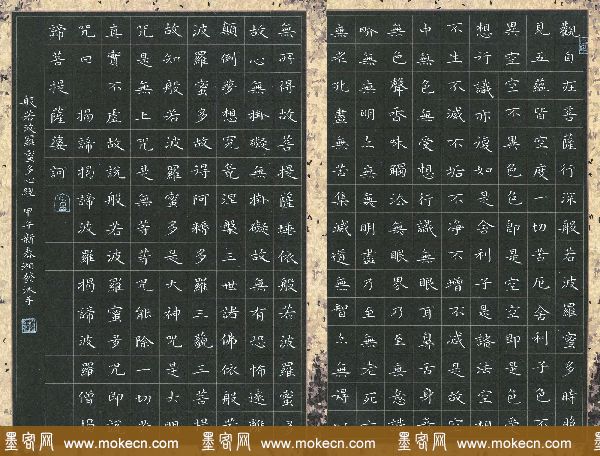 觀自在菩薩行深般若波羅蜜多時照
見五蘊皆空度一切苦厄舍利子色不
異空空不異色色即是空空即是色受
想行識亦復如是舍利子是諸法空相
不生不滅不垢不淨不增不減是故空
中無色無受想行識無眼耳鼻舌身意
無色聲香味觸法無眼界乃至無意識
界無無明亦無無明盡乃至無老死亦
無老死盡無苦集滅道無智亦無得以
無所得故菩提薩埵依般若波羅蜜多
故心無掛礙無掛礙故無有恐怖遠離
顛倒夢想究竟涅槃三世諸佛依般若
波羅蜜多故得阿耨多羅三藐三菩提
故知般若波羅蜜多是大神咒是大明
咒是無上咒是無等等咒能除一切苦
真實不虛故說般若波羅蜜多咒即說
咒曰 揭諦揭諦波羅揭諦波羅僧揭
諦菩提薩婆訶
般若波羅蜜多心經 甲子新春
墨客网 www.mokecn.com 墨客网 www.mokecn.com 墨客网 www.mokecn.com